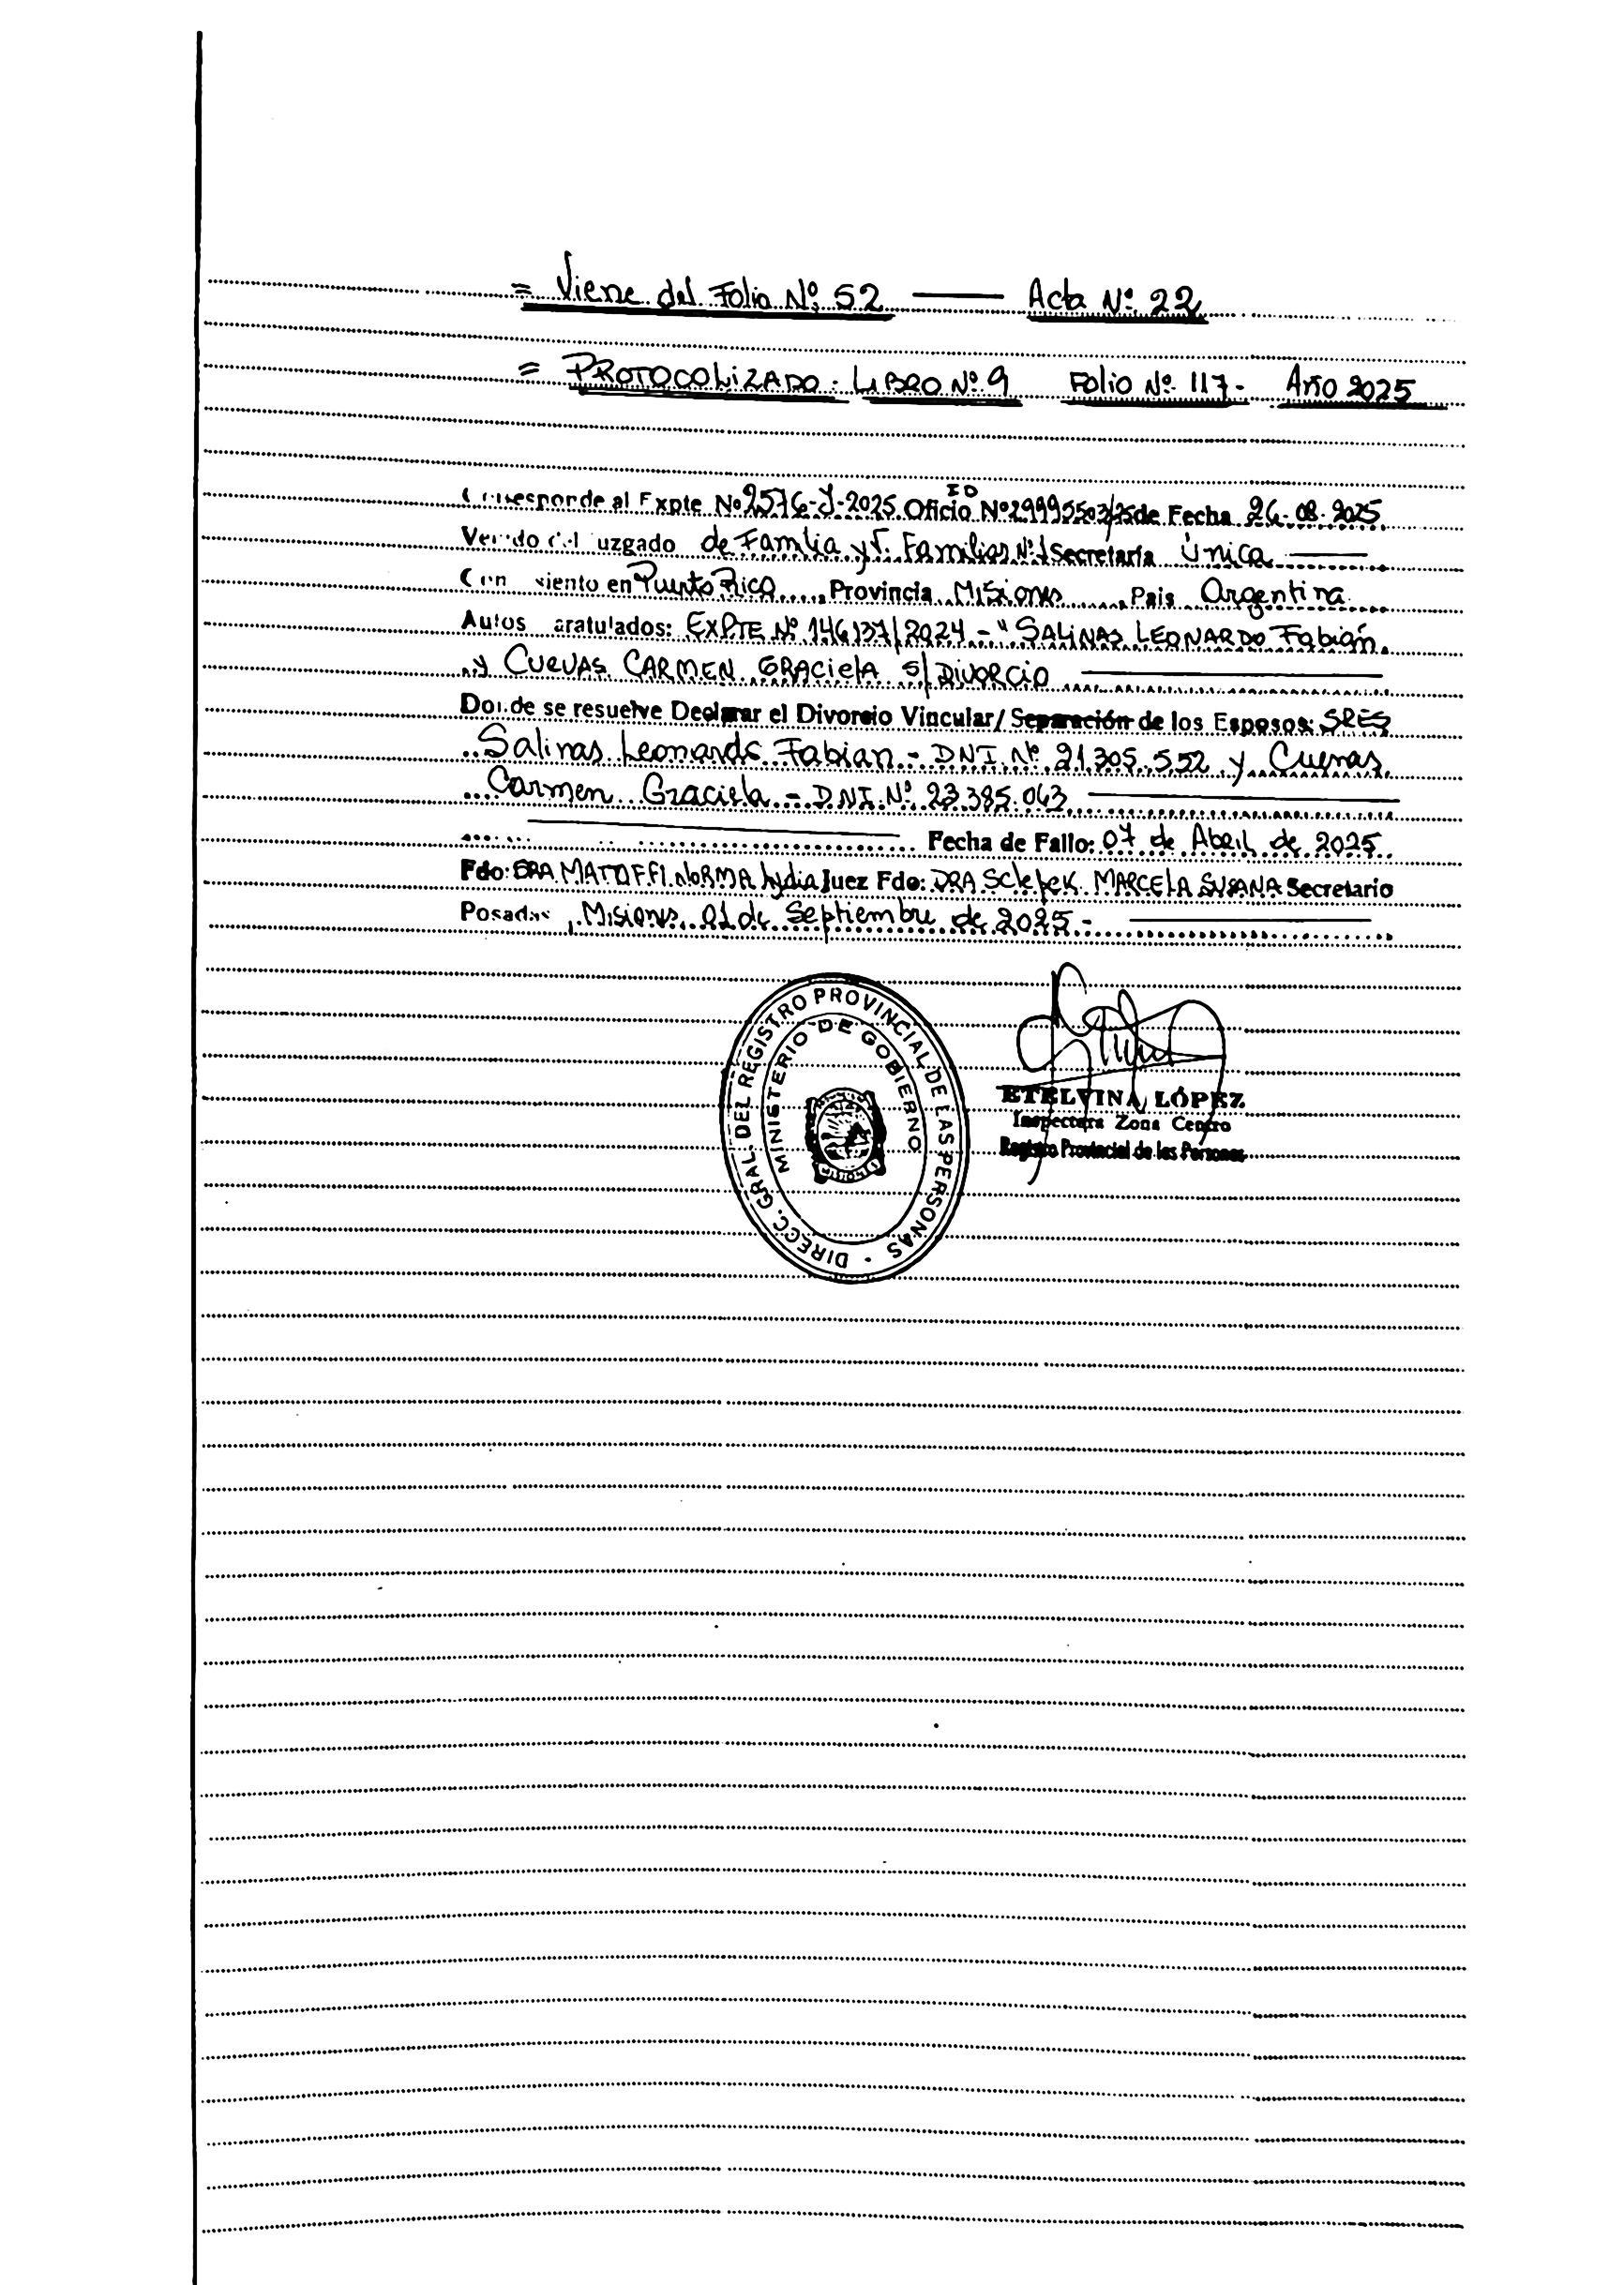 = Viene del Folio Nº 52 —— Acta Nº 22
= PROTOCOLIZADO. LIBRO Nº 9 FOLIO Nº 117- AÑO 2025
Corresponde al Expte Nº 2576-J-2025 Oficio ID Nº 29995503/25 de Fecha 26-08-2025
Venido del uzgado de Familia y V. Familiar Nº 1 Secretaría Única
Con siento en Puerto Rico, Provincia Misiones, Pais Argentina
Autos aratulados: EXPTE Nº 146137/2024 - "SALINAS LEONARDO Fabián
y CUEVAS CARMEN GRACIELA S/ DIVORCIO
Donde se resuelve Declarar el Divorcio Vincular/ Separación de los Esposos: SRES
Salinas Leonardo Fabian - DNI Nº 21.305.552 y Cuevas
Carmen Graciela - DNI Nº 23.385.043
Fecha de Fallo: 07 de Abril de 2025
Fdo: DRA. Norma Lydia Juez Fdo: DRA MARCELA SUSANA Secretario
Posadas, Misiones 01 de Septiembre de 2025 -
DIRECC. GRAL. DEL REGISTRO PROVINCIAL DE LAS PERSONAS -
MINISTERIO DE GOBIERNO
ETELVINA LÓPEZ
Inspectora Zona Centro
Registro Provincial de las Personas